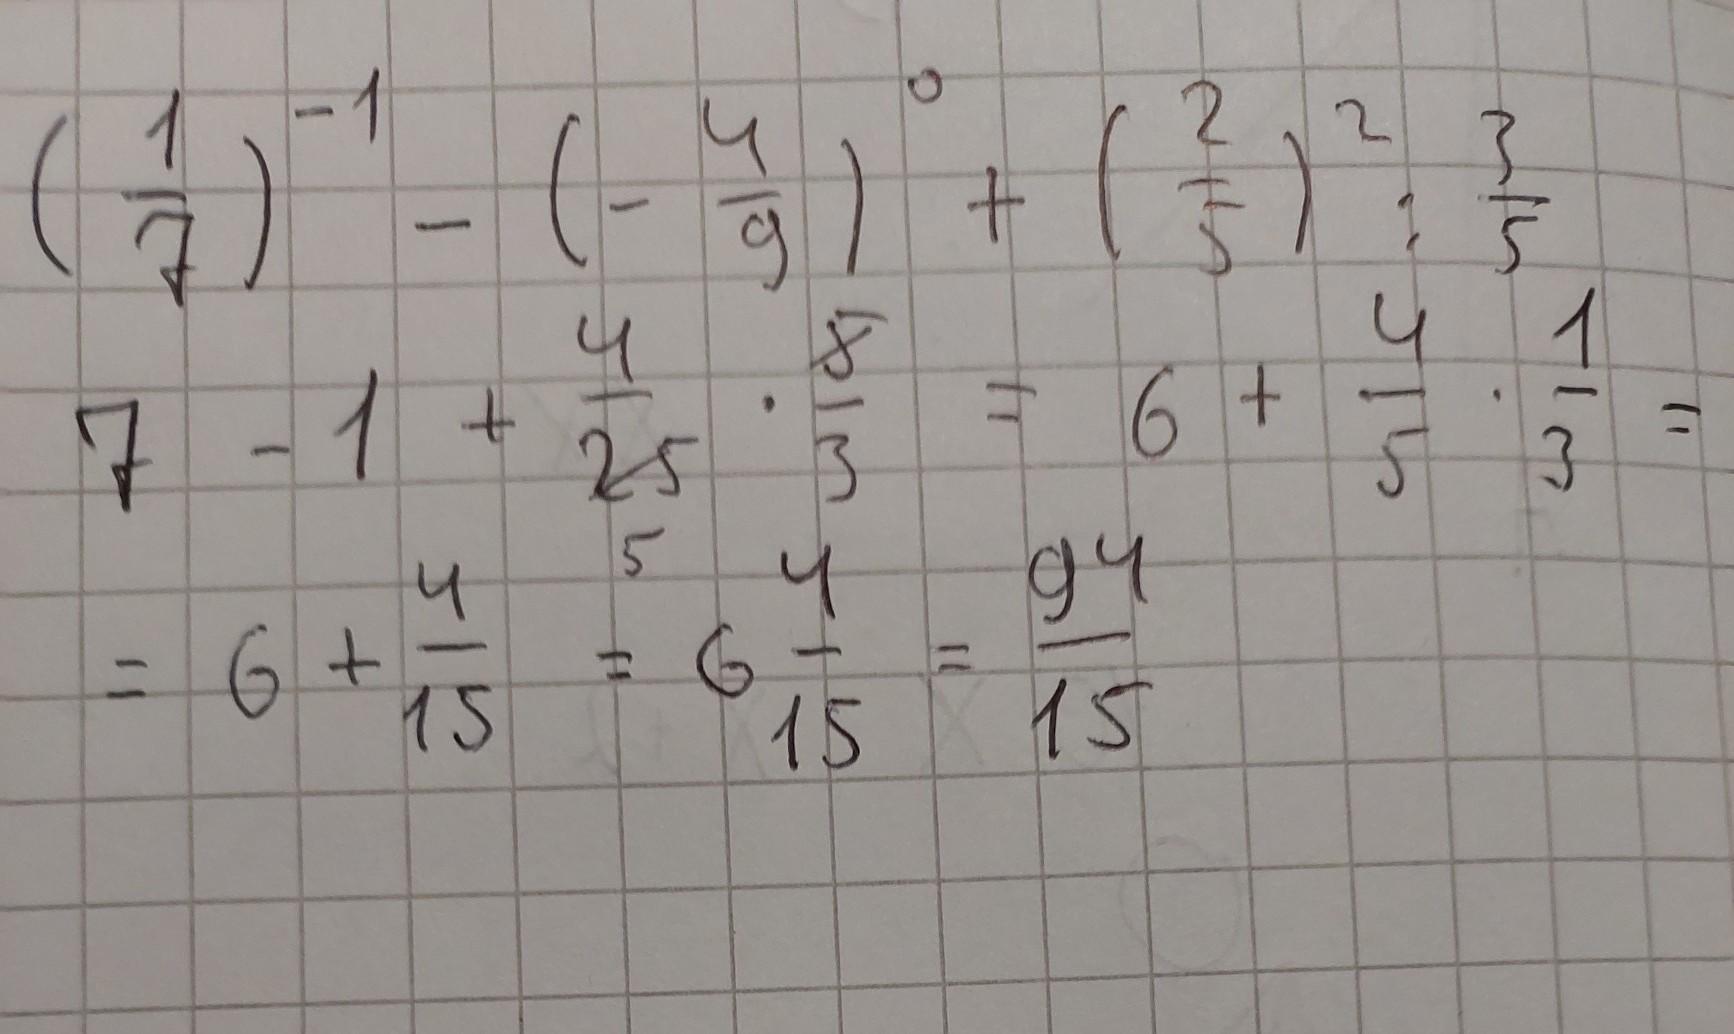 (1/7)^-1 - (-4/9)^0 + (2/5)^2 : 3/5
7 - 1 + 4/25 · 5/3 = 6 + 4/5 · 1/3 =
5
= 6 + 4/15 = 6 4/15 = 94/15